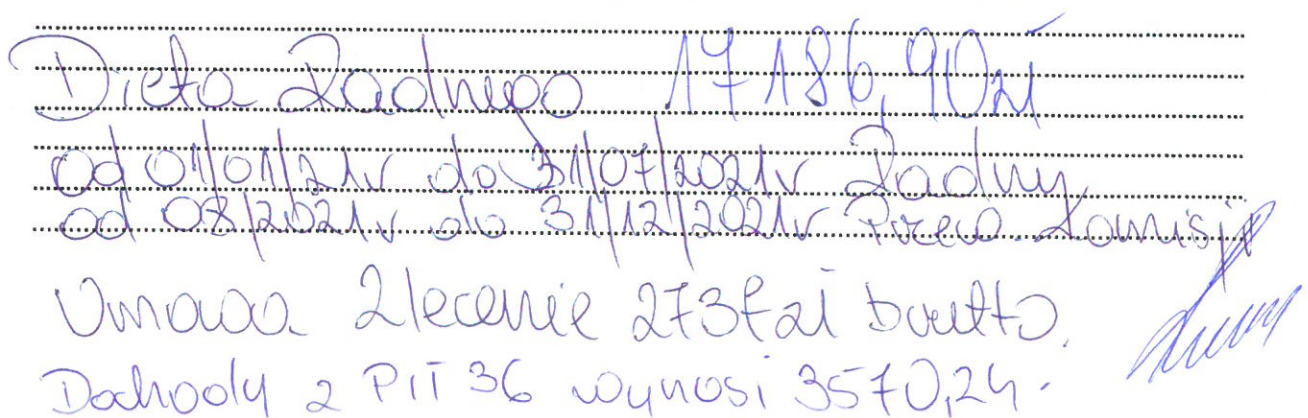 Dieta Radnego 17186,90zł
od 01/01/21r do 31/07/2021r Radny
od 08/2021r do 31/12/2021r Przew. Komisji
Umowa Zlecenie 2737zł brutto.
Dochody z PIT 36 wynosi 3570,24.